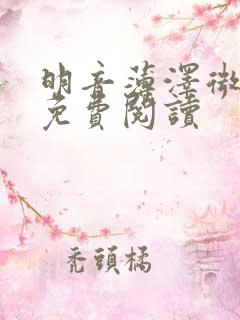 明音藻澤微
免費閱讀
禿頭橘